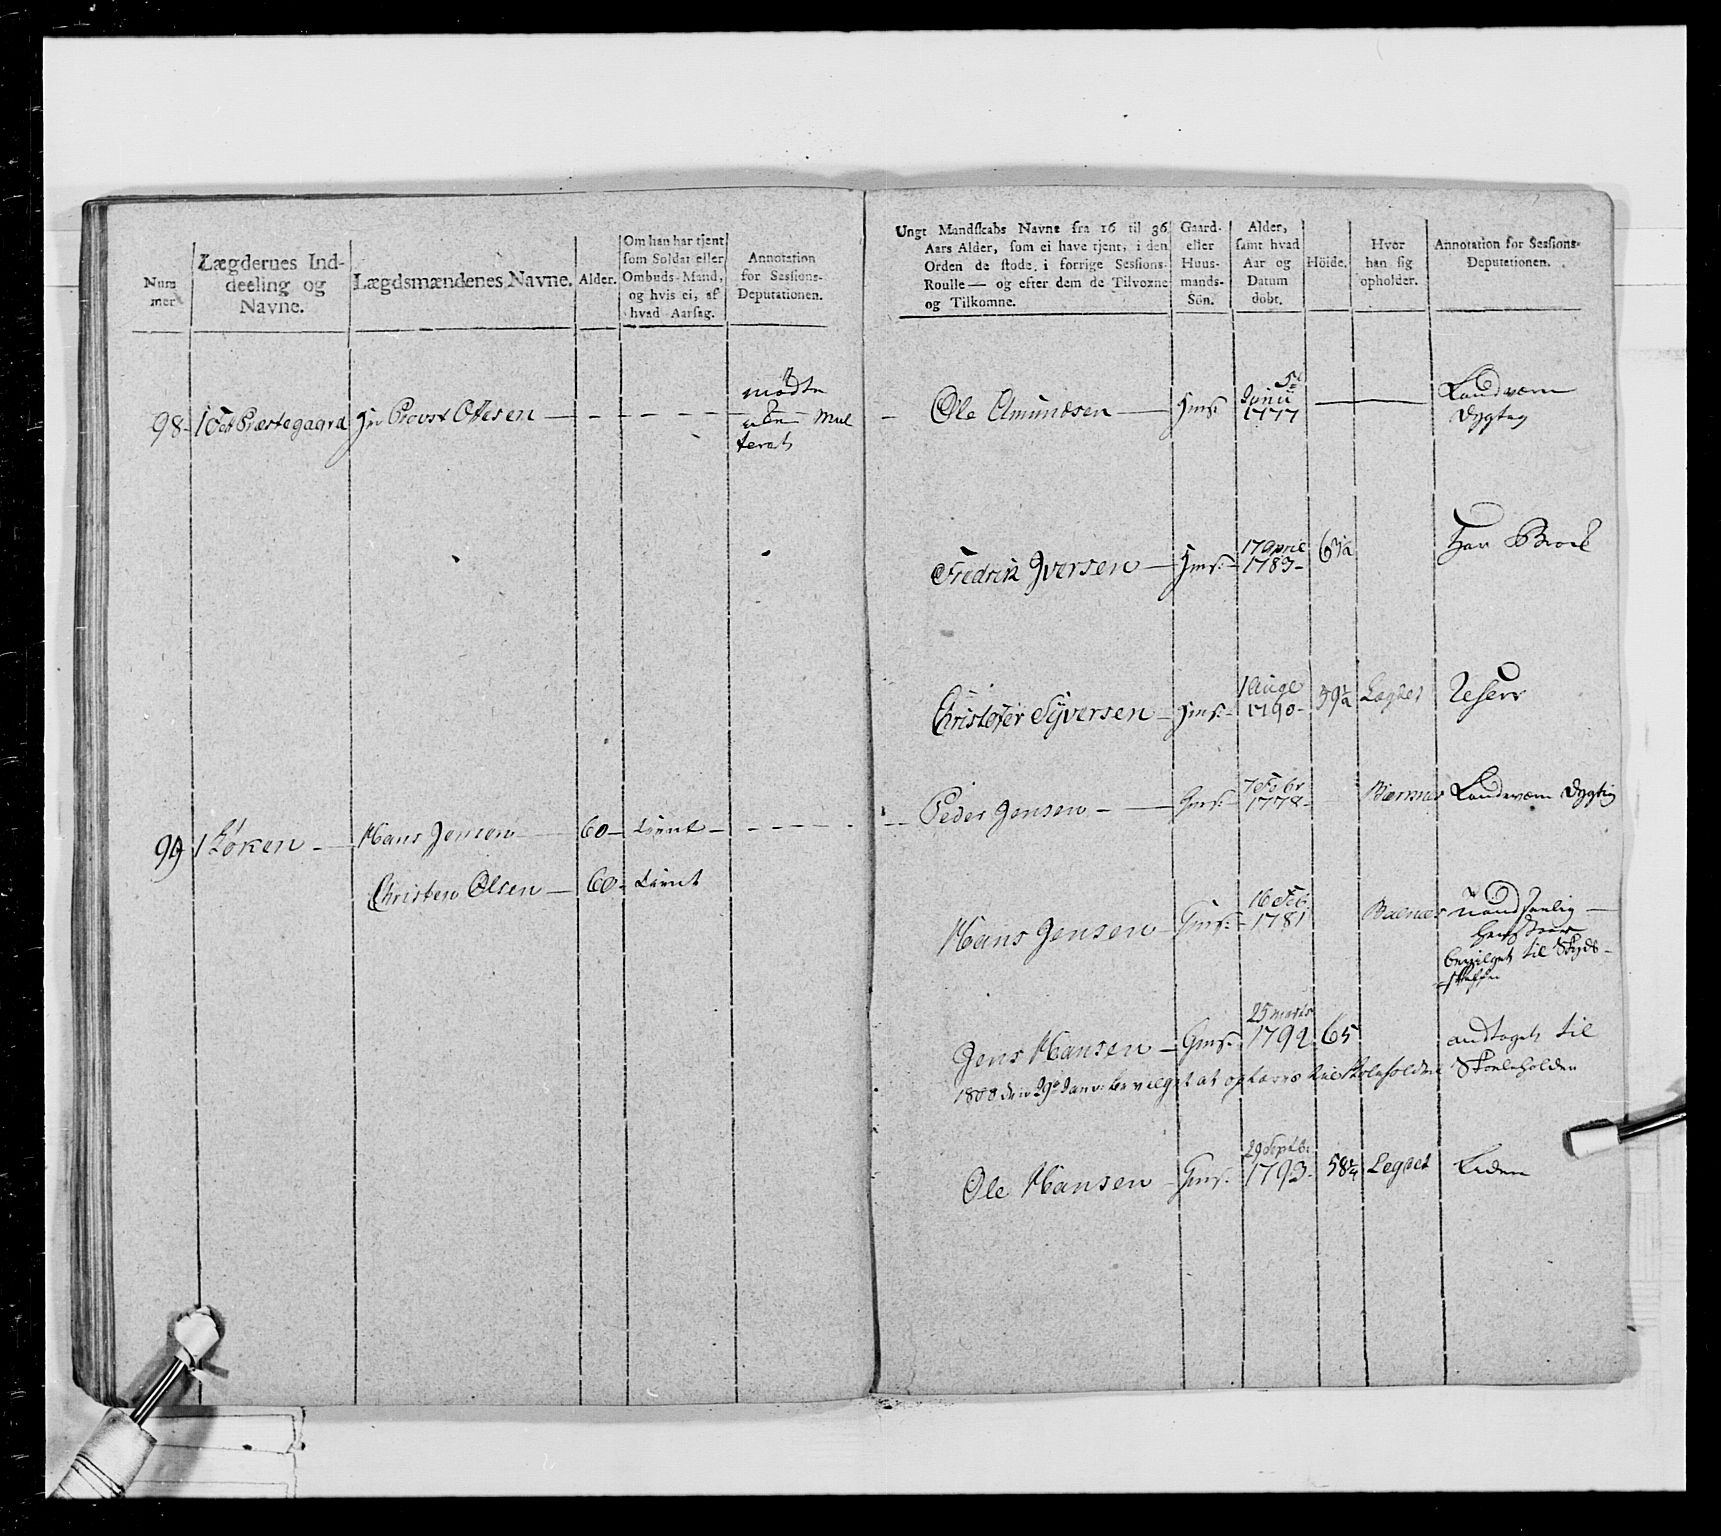 Num
mer
Lægdernes Ind-
deeling og
Navne.
Lægdsmændenes Navne.
Alder.
Om han har tjent
som Soldat eller
Ombuds-Mand,
og hvis ei, af
hvad Aarsag.
Annotation
for Sessions-
Deputationen.
98 1 Fet Præstegaard Hr Provst Ottesen
mødte
Mul
teret
99 1 Løken Hans Jensen 60 tient
Christen Olsen 60 tient
Ungt Mandskabs Navne fra 16 til 36
Aars Alder, som ei have tjent, i den
Orden de stode i forrige Sessions-
Roulle — og efter dem de Tilvoxne
og Tilkomne.
Gaard-
eller
Huus-
mands-
Sön.
Alder,
samt hvad
Aar og
Datum
döbt.
Höide.
Hvor
han sig
opholder.
Annotation for Sessions-
Deputationen.
Ole Amundsen Hms: 5t Junii 1777 Landværn
Dygtig
Fredrik Iversen Hms: 17 April 1783 63½ Har Brok
Christofer Syversen Hms: 1 Aug 1790 59½ Legdet Reserv
Peder Jensen Gms: 7 Febr 1778 Landeværn Dygtig
Hans Jensen Gms: 16 Feb: 1781
bevilget til Skyds-
skaffer
Jens Hansen Gms: 25 Marts 1792 65 andtaget til
1808 den 29de Janv: bevilget at oplæres til Skoleholder Skoleholder
Ole Hansen Gms: 29 Septbr 1793 58¼ Legdet Liden